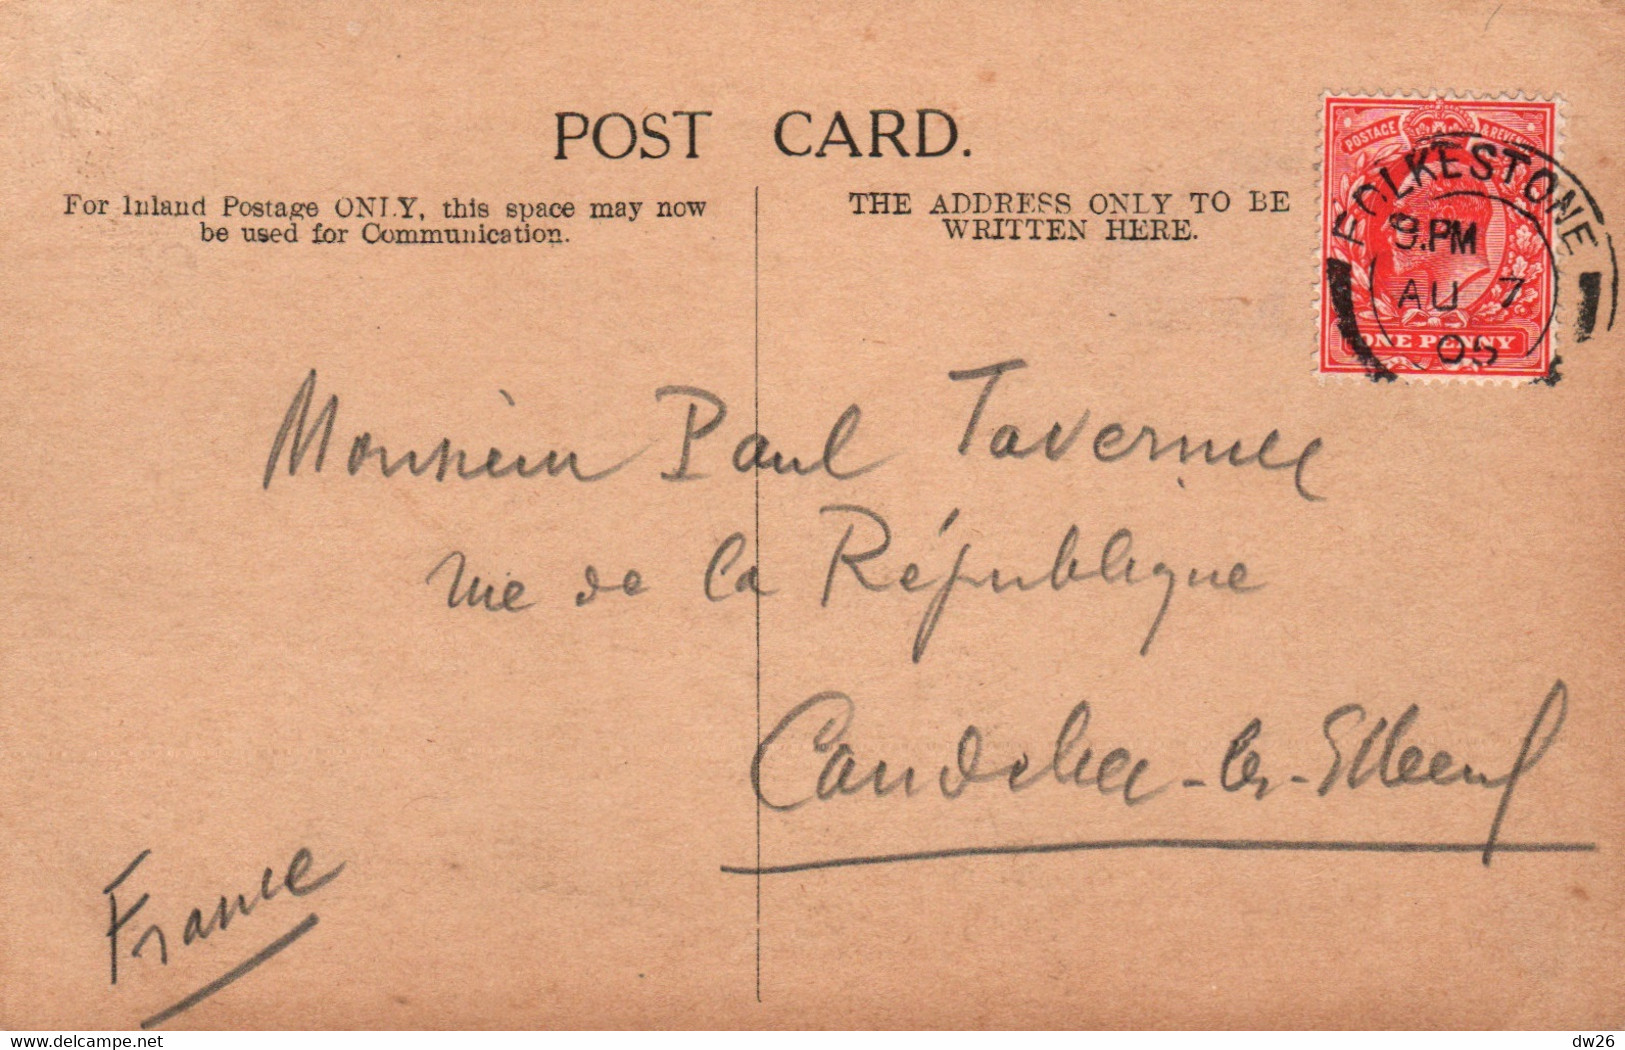 POST CARD.
For Inland Postage ONLY, this space may now
be used for Communication.
THE ADDRESS ONLY TO BE
WRITTEN HERE.
POSTAGE & REVENUE
FOLKESTONE
9.PM
AU 7
05
ONE PENNY
Monsieur Paul Tavernier
rue de la République
Caudebec-les-Elbeuf
France
https://www.delcampe.net
dw26